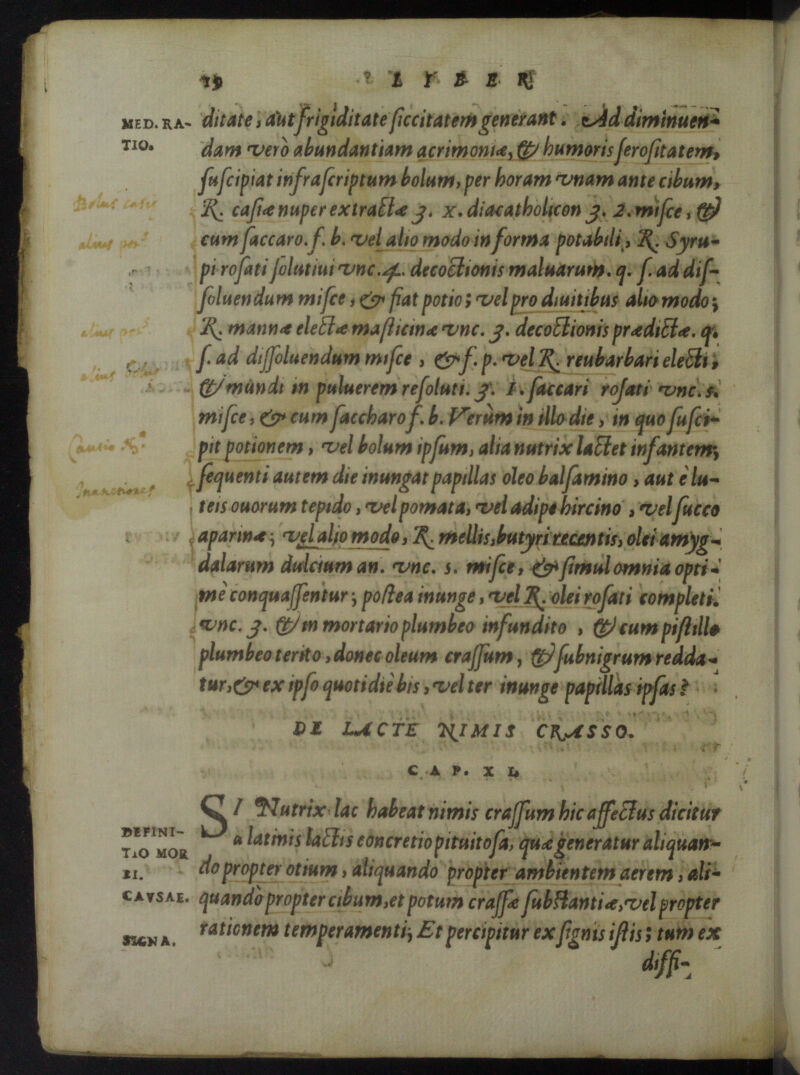 LIBER
MED. RA- ditate, aut frigiditate ſiccitatem generant. Ad diminuen-
TIO. dam vero abundantiam acrimoniæ, & humoris ſeroſitatem,
ſuſcipiat infraſcriptum bolum, per horam vnam ante cibum,
Bolus
℞. caſiæ nuper extractæ ʒ. x. diacatholicon ʒ. 2. miſce, &
cum ſaccaro. ſ. b. vel alio modo in forma potabili, ℞. Syru-
pi roſati ſolutiui vnc. 4. decoctionis maluarum. q. ſ. ad diſ-
ſoluendum miſce, & fiat potio; vel pro diuitibus alio modo;
℞. mannæ electæ maſticinæ vnc. ʒ. decoctionis prædictæ. q.
ſ. ad diſſoluendum miſce, & f. p. vel ℞. reubarbari electi,
& mundi in puluerem reſoluti. ʒ. 1. ſaccari roſati vnc. s.
miſce, & cum ſaccharo f. b. Verùm in illo die, in quo ſuſci-
pit potionem, vel bolum ipſum, alia nutrix lactet infantem;
ſequenti autem die inungat papillas oleo balſamino, aut è lu-
teis ouorum tepido, vel pomata, vel adipe hircino, vel ſucco
aparinæ; vel alio modo, ℞. mellis, butyri recentis, olei amyg-
dalarum dulcium an. vnc. s. miſce, & ſimul omnia opti-
mè conquaſſentur; poſtea inunge, vel ℞. olei roſati completi.
vnc. ʒ. & in mortario plumbeo infundito, & cum piſtillo
plumbeo terito, donec oleum craſſum, & ſubnigrum redda-
tur, & ex ipſo quotidiè bis, vel ter inunge papillas ipſas?
DE LACTE NIMIS CRASSO.
CAP. XI
SI Nutrix lac habeat nimis craſſum hic affectus dicitur
DEFINI- à latinis lactis concretio pituitoſa, quæ generatur aliquan-
TIO MOR
BI. do propter otium, aliquando propter ambientem aerem, ali-
CAVSAE. quando propter cibum, et potum craſſæ ſubſtantiæ, vel propter
SIGNA. rationem temperamenti; Et percipitur ex ſignis iſtis; tum ex
diffi-